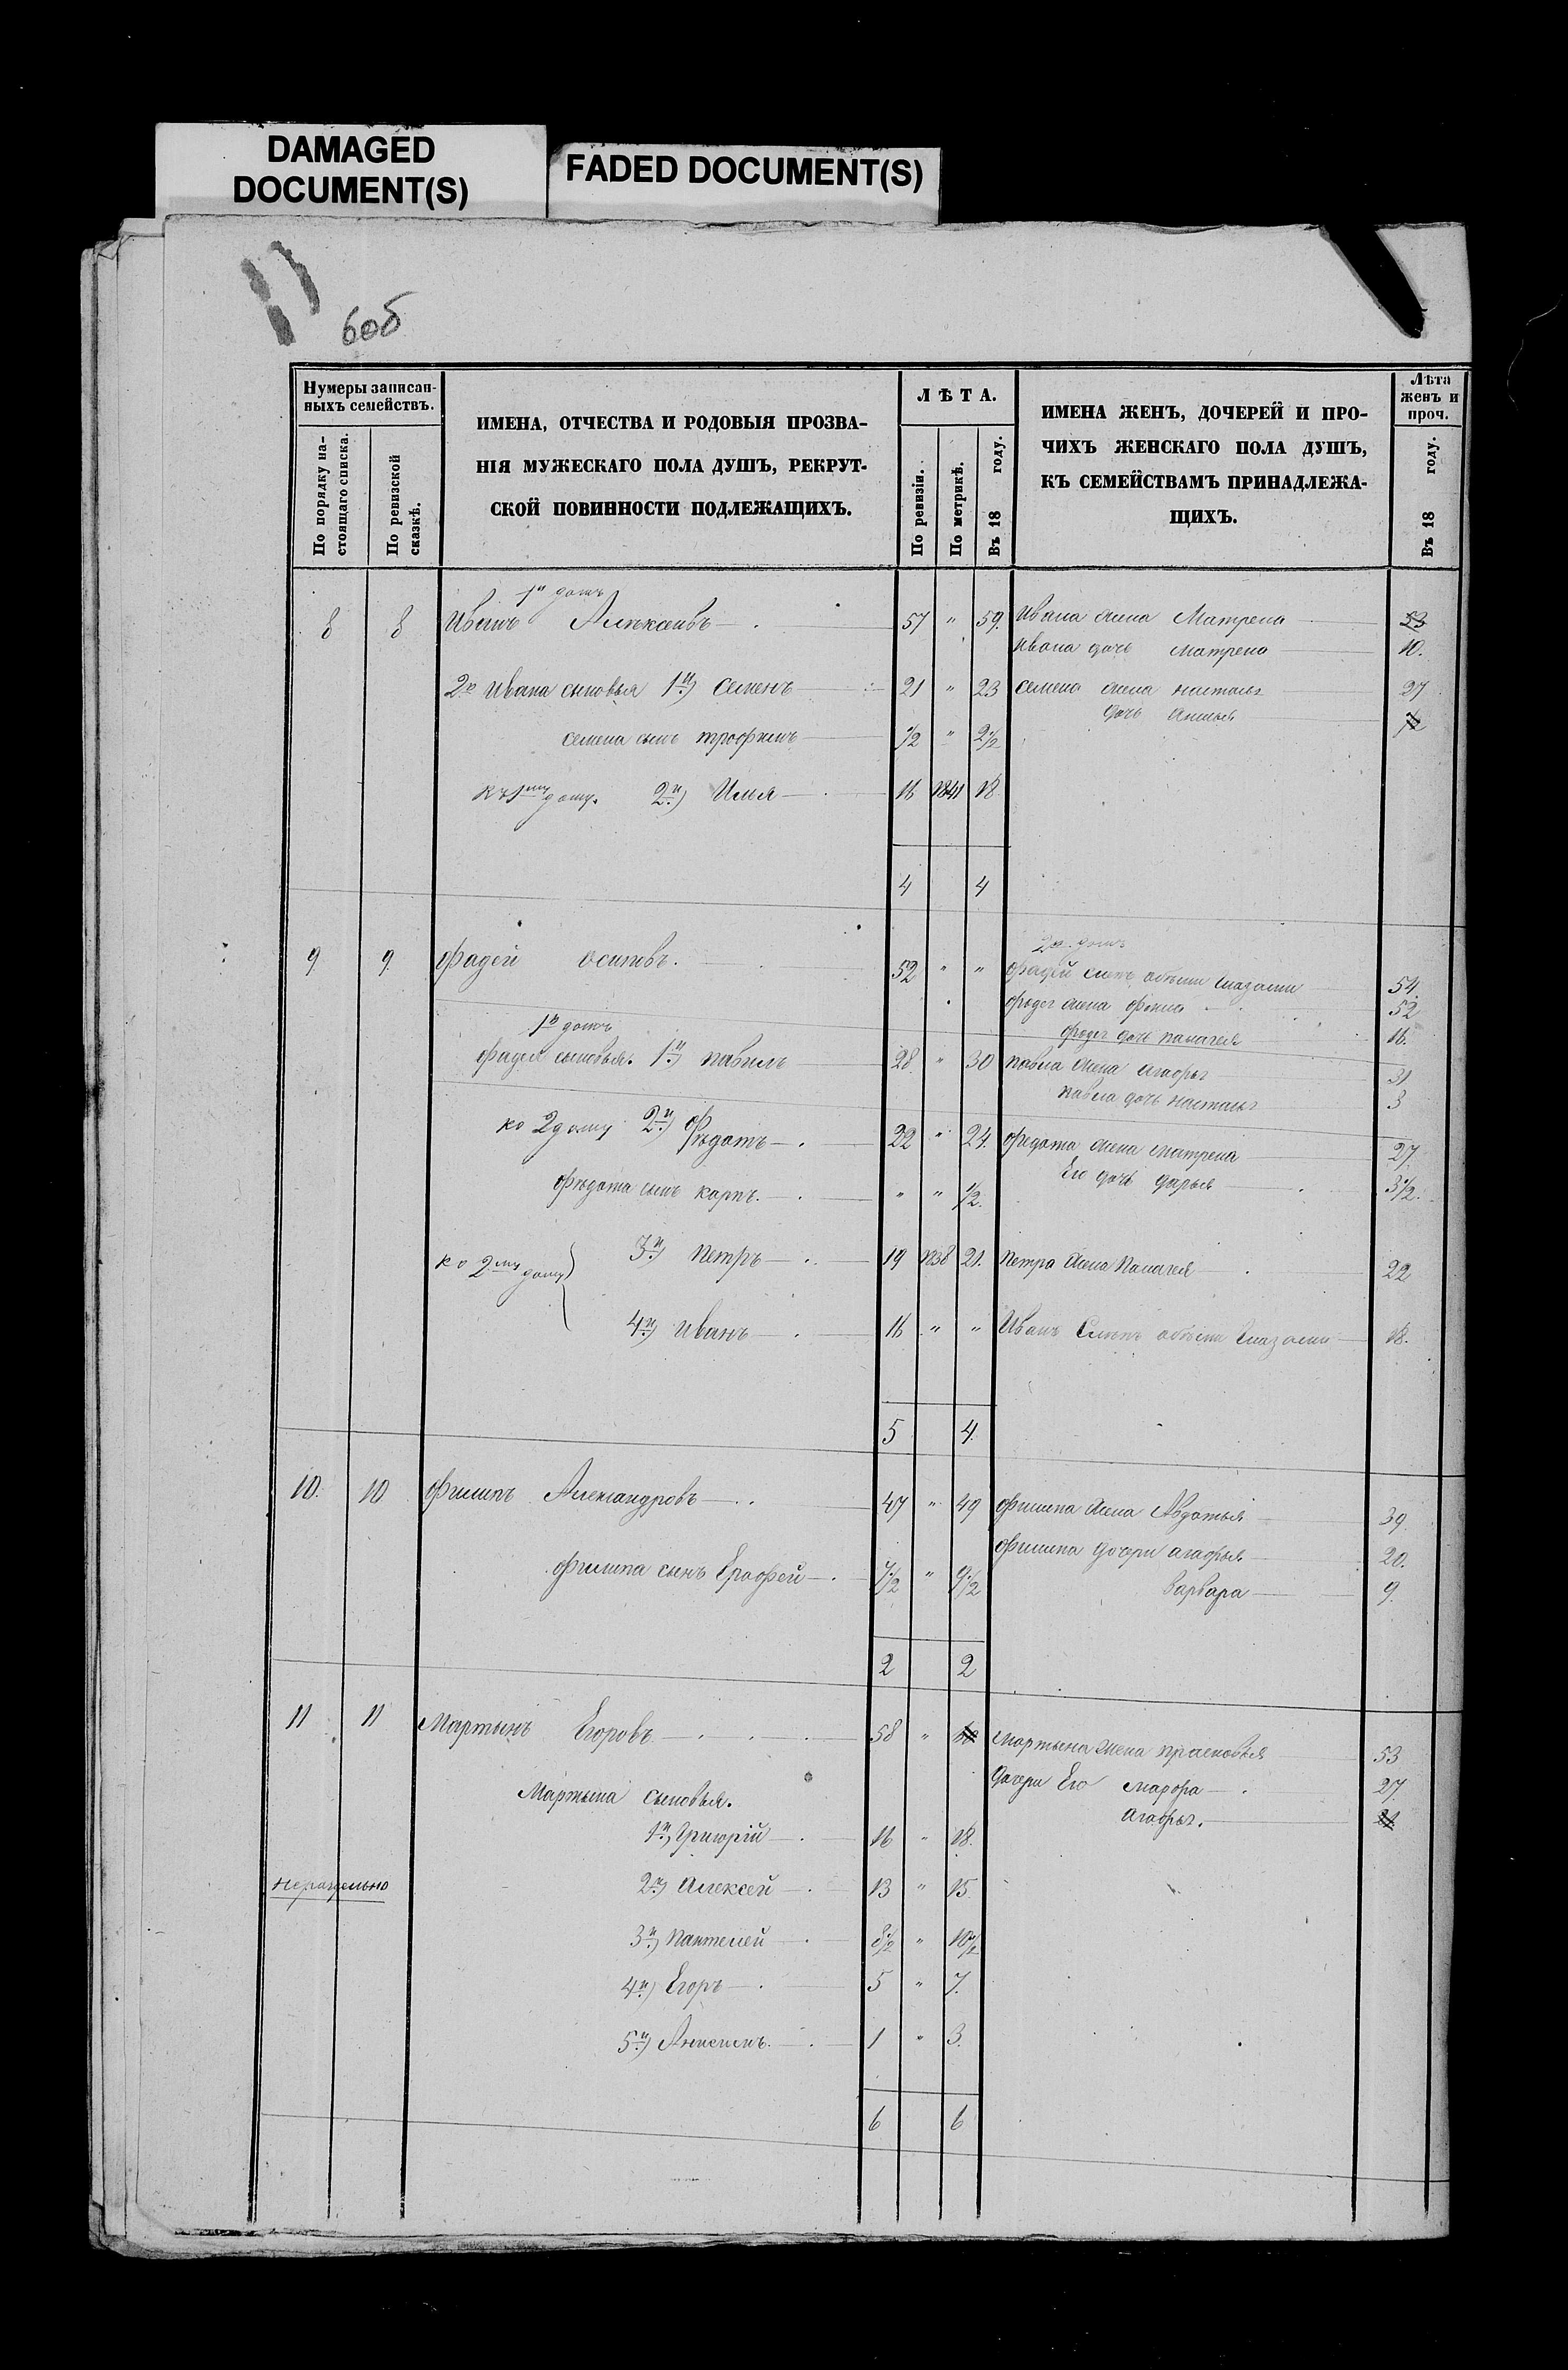 DAMAGED
DOCUMENT(S)
FADED DOCUMENT(S)
6об
Нумеры записан-
ныхъ семействъ.
По порядку на-
стоящаго списка.
По ревизской
сказкѣ.
ИМЕНА, ОТЧЕСТВА И РОДОВЫЯ ПРОЗВА-
НІЯ МУЖЕСКАГО ПОЛА ДУШЪ, РЕКРУТ-
СКОЙ ПОВИННОСТИ ПОДЛЕЖАЩИХЪ.
ЛѢТА.
По ревизіи.
По метрикѣ.
Въ 18 году.
ИМЕНА ЖЕНЪ, ДОЧЕРЕЙ И ПРО-
ЧИХЪ ЖЕНСКАГО ПОЛА ДУШЪ,
КЪ СЕМЕЙСТВАМЪ ПРИНАДЛЕЖА-
ЩИХЪ.
Лѣта
женъ и
проч.
Въ 18 году.
1й домъ
8 8 Иванъ Алексеевъ 57 " 59. Ивана жена Матрена 53
Ивана дочь матрена 10.
Ивана сыновья 1й) Семенъ 21 " 23 семена жена настасья 27
дочь
семена сынъ трофимъ 1/2 " 2 1/2
къ 1му дому. 2й) Илья 16 1841 18
4 4
2й домъ
9 9. Фадей осиповъ. 52 " " Фадей слепъ обеими глазами 54.
жена 52
1й домъ
дочь палагея 16.
Фадея сыновья. 1й) павелъ 28 " 30 павла жена агафья 31
павла дочь настасья 3
ко 2 дому 2й) Федотъ 22 " 24. федота жена матрена 27.
Его дочь дарья 3 1/2.
Федота сынъ карпъ. " " 1/2.
ко 2му дому) 3й) петръ 19 1838 21. петра жена палагея 22
4й) иванъ 16 " " Иванъ Слепъ обеими глазами 18.
5 4
10. 10 Филипъ Александровъ 47 " 49 филипа жена Авдотья 39
филипа дочери агафья 20.
филипа сынъ Ерофей 7 1/2 " 9 1/2
варвара 9.
2 2
11 11 Мартынъ Егоровъ 58 " мартына жена прасковья 53
дочери Его марфа 27
Мартына сыновья.
агафья.
1й) Григорій 16 " 18.
нераздельно
2й) Алексей 13 " 15
3й) пантелей 8 1/2 " 10 1/2
4й) Егоръ 5 " 7.
5й) 1 " 3.
6 6